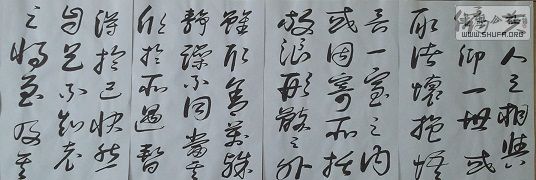 人之相與
仰一世或
取諸懷抱悟
言一室之內
或因寄所托
放浪形骸之外
雖取舍萬殊
靜躁不同當其
欣於所遇暫
得於己快然
自足不知老
之將至及其
WWW.SHUFA.ORG